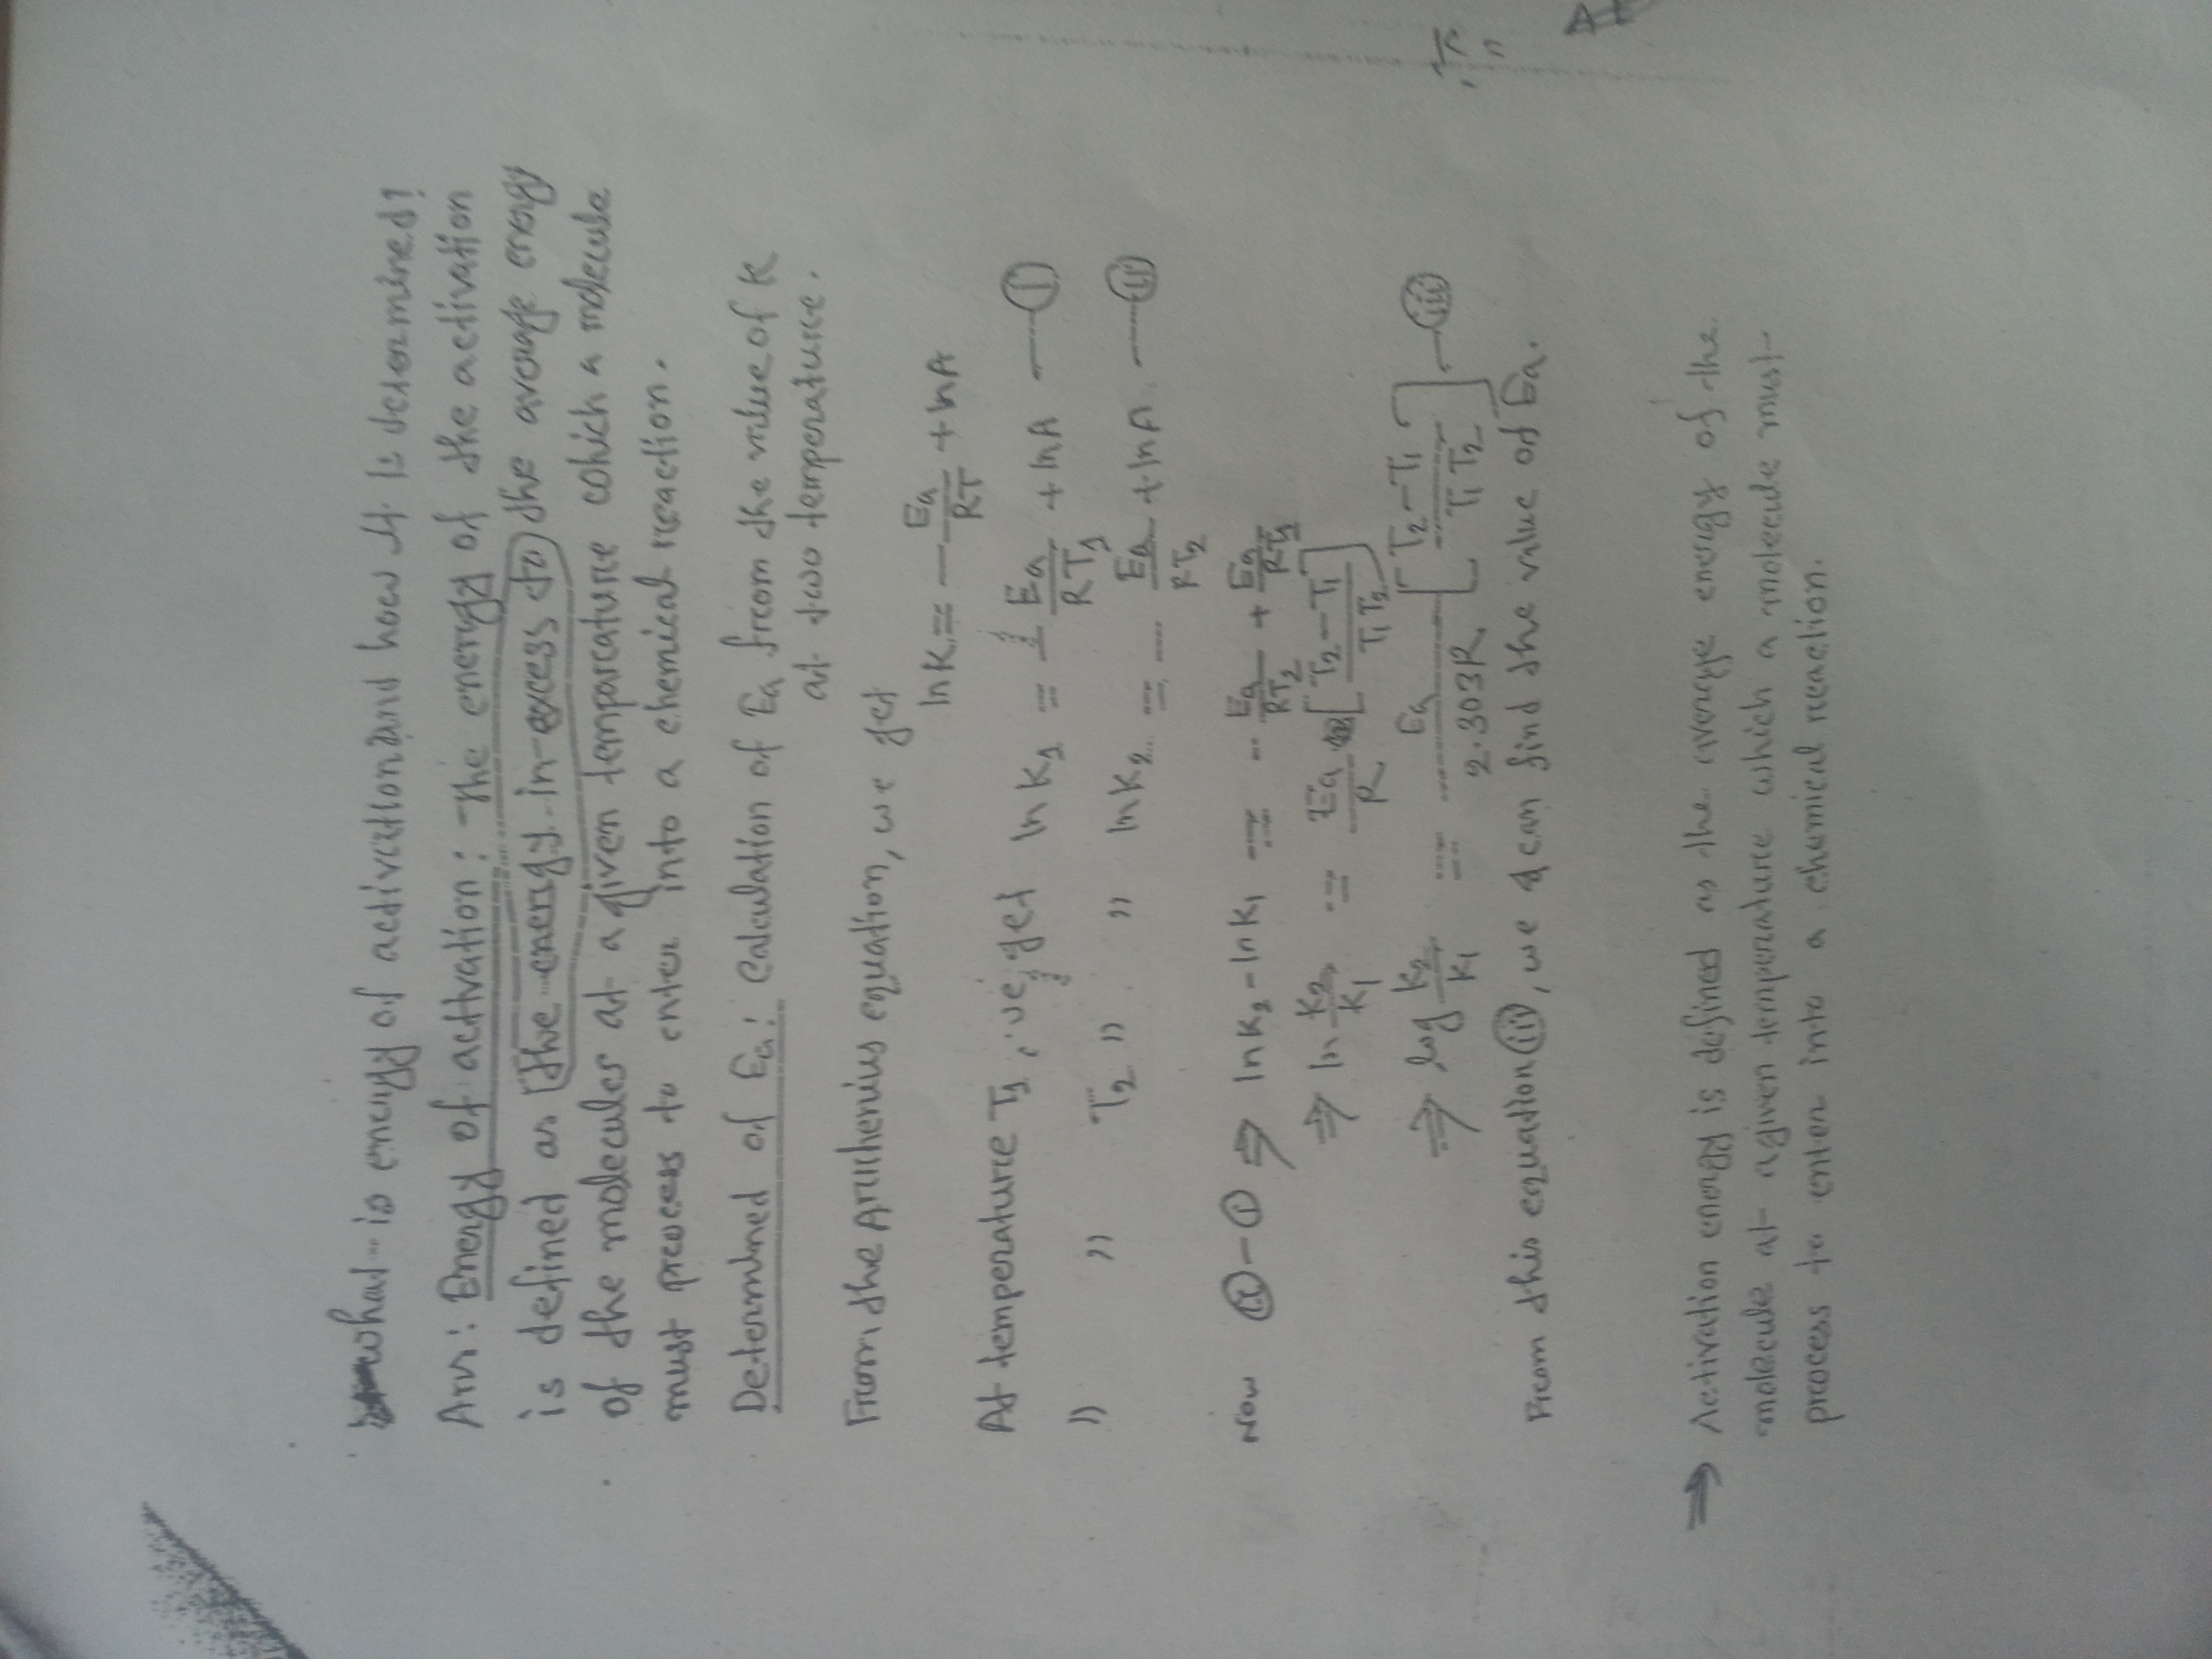 what is energy of activation and how it is determined?
Ans: Energy of activation: The energy of the activation
is defined as the energy in-excess to the average energy
of the molecules at a given temparcature which a molecule
must process to enter into a chemical reaction.
Determined of Ea: Calculation of Ea from the value of K
at two temperature.
From the Arrhenius equation, we get
ln K = - Ea/RT + ln A
At temperature T1, we get ln K1 = - Ea/RT1 + ln A — (i)
" " T2 " " ln K2 = - Ea/RT2 + ln A — (ii)
Now (ii) - (i) ⇒ ln K2 - ln K1 = - Ea/RT2 + Ea/RT1
⇒ ln K2/K1 = Ea/R [T2 - T1 / T1 T2]
⇒ log K2/K1 = Ea/2.303R [T2 - T1 / T1 T2] — (iii)
From this equation (iii), we can find the value of Ea.
⇒ Activation energy is defined as the average energy of the
molecule at a given temperature which a molecule must
process to enter into a chemical reaction.